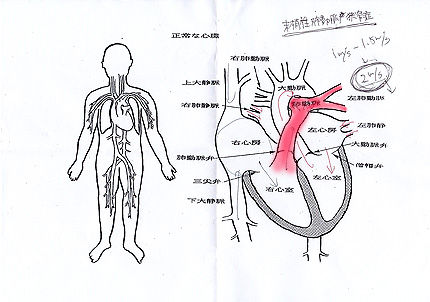 正常な心臓
末梢性肺動脈狭窄症
1m/s - 1.5m/s
2m/s
右肺動脈
大動脈
上大静脈
左肺動脈
右肺静脈
肺動脈
左肺静
右心房
左心房
大動脈弁
肺動脈弁
僧帽弁
三尖弁
右心室
左心室
下大静脈